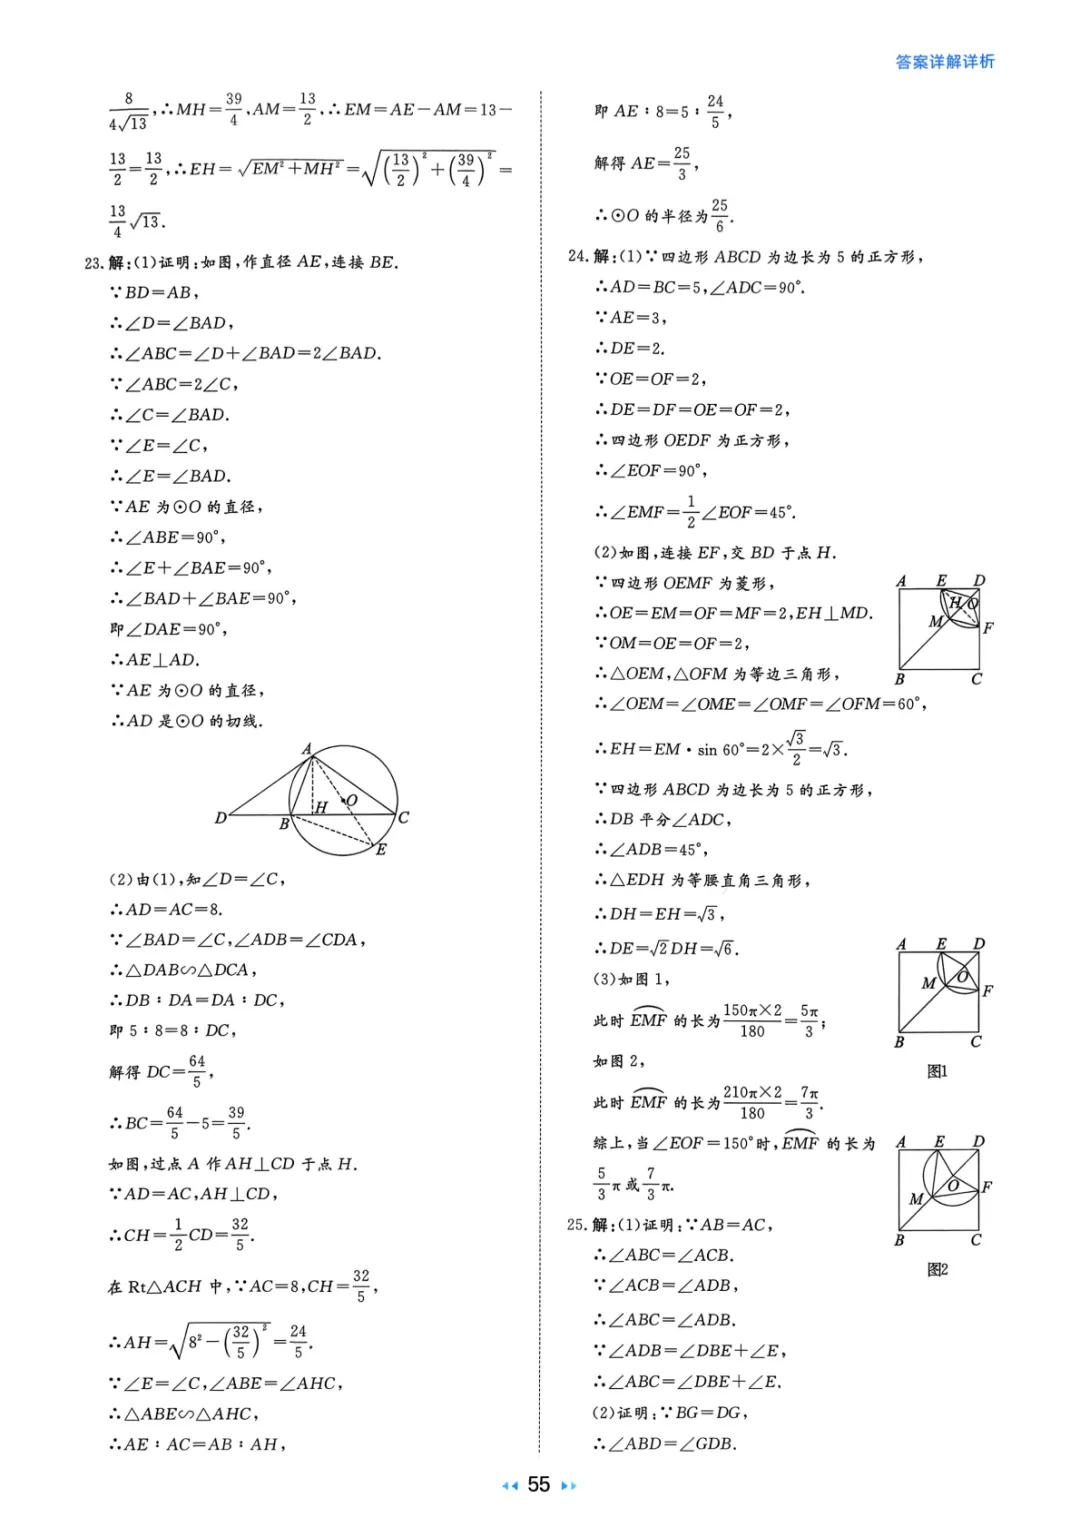 答案详解详析
8/(4√13),∴MH=39/4,AM=13/2,∴EM=AE-AM=13-
13/2=13/2,∴EH=√(EM²+MH²)=√((13/2)²+(39/4)²)=
13/4 √13.
23.解:(1)证明:如图,作直径 AE,连接 BE.
∵BD=AB,
∴∠D=∠BAD,
∴∠ABC=∠D+∠BAD=2∠BAD.
∵∠ABC=2∠C,
∴∠C=∠BAD.
∵∠E=∠C,
∴∠E=∠BAD.
∵AE 为⊙O 的直径,
∴∠ABE=90°,
∴∠E+∠BAE=90°,
∴∠BAD+∠BAE=90°,
即∠DAE=90°,
∴AE⊥AD.
∵AE 为⊙O 的直径,
∴AD 是⊙O 的切线.
A
D B H O C
E
(2)由(1),知∠D=∠C,
∴AD=AC=8.
∵∠BAD=∠C,∠ADB=∠CDA,
∴△DAB∽△DCA,
∴DB:DA=DA:DC,
即 5:8=8:DC,
解得 DC=64/5,
∴BC=64/5-5=39/5.
如图,过点 A 作 AH⊥CD 于点 H.
∵AD=AC,AH⊥CD,
∴CH=1/2 CD=32/5.
在 Rt△ACH 中,∵AC=8,CH=32/5,
∴AH=√(8²-(32/5)²)=24/5.
∵∠E=∠C,∠ABE=∠AHC,
∴△ABE∽△AHC,
∴AE:AC=AB:AH,
即 AE:8=5:24/5,
解得 AE=25/3,
∴⊙O 的半径为25/6.
24.解:(1)∵四边形 ABCD 为边长为 5 的正方形,
∴AD=BC=5,∠ADC=90°.
∵AE=3,
∴DE=2.
∵OE=OF=2,
∴DE=DF=OE=OF=2,
∴四边形 OEDF 为正方形,
∴∠EOF=90°,
∴∠EMF=1/2∠EOF=45°.
(2)如图,连接 EF,交 BD 于点 H.
∵四边形 OEMF 为菱形,
∴OE=EM=OF=MF=2,EH⊥MD.
∵OM=OE=OF=2,
∴△OEM,△OFM 为等边三角形,
∴∠OEM=∠OME=∠OMF=∠OFM=60°,
A E D
H O
M F
B C
∴EH=EM·sin 60°=2×√3/2=√3.
∵四边形 ABCD 为边长为 5 的正方形,
∴DB 平分∠ADC,
∴∠ADB=45°,
∴△EDH 为等腰直角三角形,
∴DH=EH=√3,
∴DE=√2DH=√6.
(3)如图 1,
此时 EMF⌒ 的长为(150π×2)/180=5π/3;
A E D
M O F
B C
图1
如图 2,
此时 EMF⌒ 的长为(210π×2)/180=7π/3.
综上,当∠EOF=150°时,EMF⌒ 的长为
5/3 π或7/3 π.
A E D
M O F
B C
图2
25.解:(1)证明:∵AB=AC,
∴∠ABC=∠ACB.
∵∠ACB=∠ADB,
∴∠ABC=∠ADB.
∵∠ADB=∠DBE+∠E,
∴∠ABC=∠DBE+∠E.
(2)证明:∵BG=DG,
∴∠ABD=∠GDB.
55